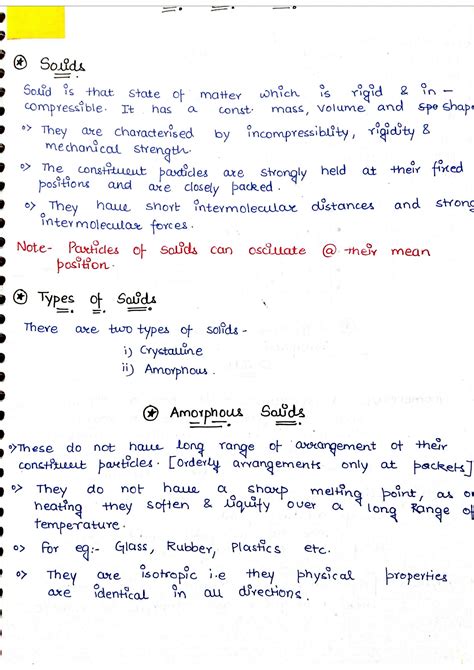 ⊛ Solids
Solid is that state of matter which is rigid & in-
compressible. It has a const. mass, volume and spe shape
o> They are characterised by incompressiblity, rigidity &
mechanical strength.
o> The constituent particles are strongly held at their fixed
positions and are closely packed.
o> They have short intermolecular distances and strong
intermolecular forces.
Note- Particles of solids can oscillate @ their mean
position.
⊛ Types of Solids
There are two types of solids -
i) Crystalline
ii) Amorphous.
⊛ Amorphous Solids
o>These do not have long range of arrangement of their
constituent particles. [Orderly arrangements only at pockets]
o> They do not have a sharp melting point, as on
heating they soften & liquify over a long range of
temperature.
o> for eg:- Glass, Rubber, Plastics etc.
o> They are isotropic i.e they physical properties
are identical in all directions.